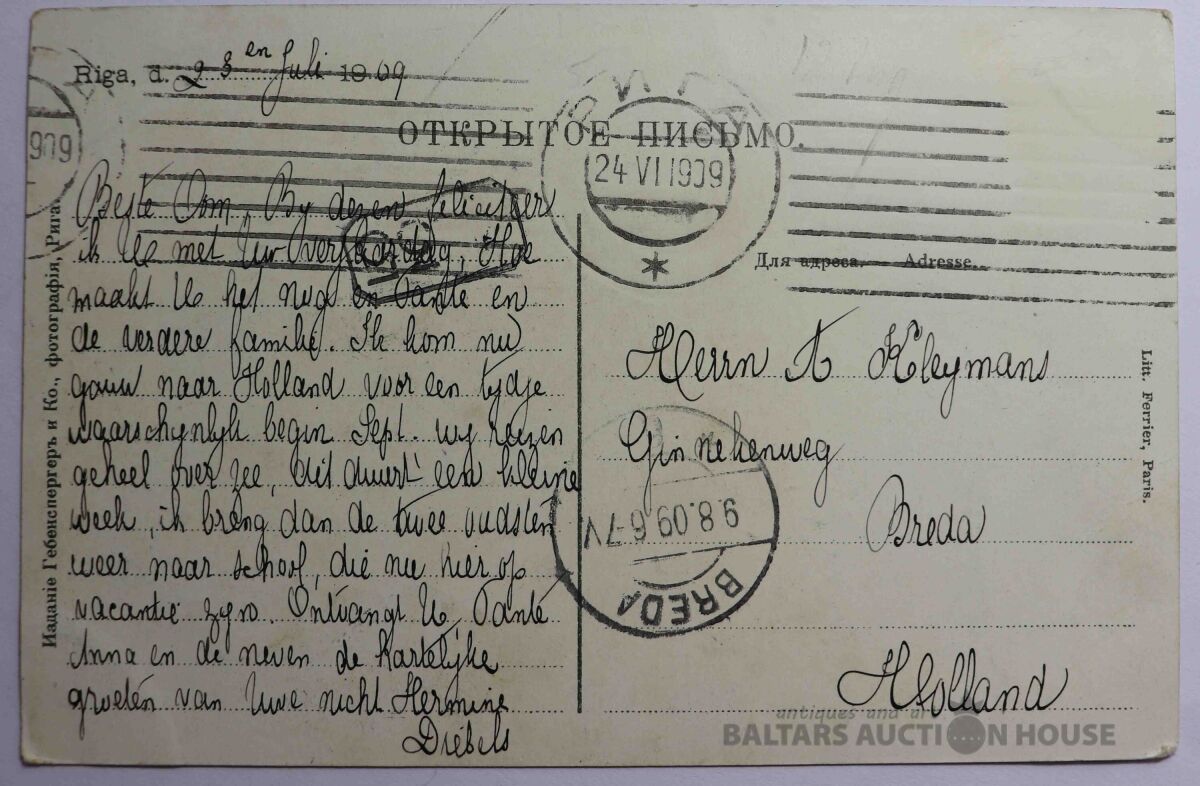 Riga, d. 23 en Juli 1909
ОТКРЫТОЕ ПИСЬМО.
РИГА
24 VI 1909
909
Для адреса. — Adresse.
Beste Oom, By dezen feliciteer
ik U met Uw verjaardag, Hoe
maakt U het nog en Tante en
de verdere familie. Ik kom nu
gauw naar Holland voor een tydje
waarschynlyk begin Sept. wy reizen
geheel over zee, dit duurt een kleine
week, ik breng dan de twee oudsten
weer naar school, die nu hier op
vacantie zyn. Ontvangt U, Tante
Anna en de neven de hartelyke
groeten van Uwe nicht Hermine
Diebels
Herrn A Kleymans
Ginnekenweg
Breda
Holland
9.8.09.6-7V
BREDA
Изданіе Гебенспергеръ и Ко., фотографія, Рига.
Litt. Ferrier, Paris.
antiques and ar
BALTARS AUCTION HOUSE